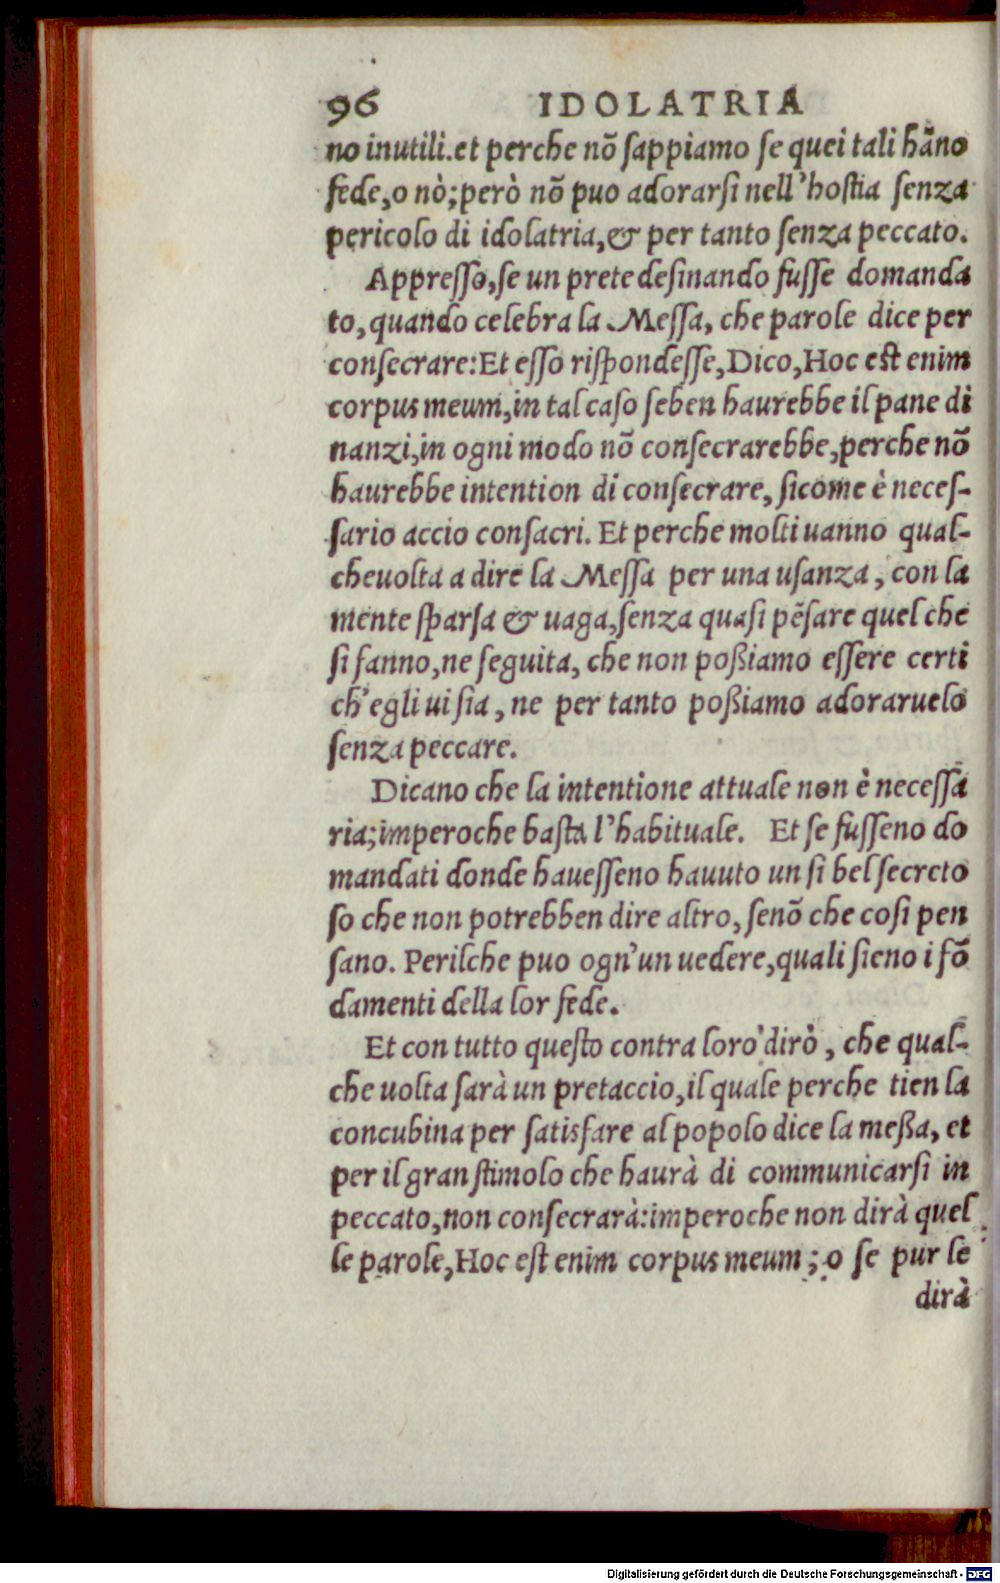 96 IDOLATRIA
no inutili.et perche nõ ſappiamo ſe quei tali hãno
fede,o nò;però nõ puo adorarſi nell'hoſtia ſenza
pericolo di idolatria,& per tanto ſenza peccato.
Appreſſo,ſe un prete deſinando fuſſe domanda
to,quando celebra la Meſſa, che parole dice per
conſecrare:Et eſſo riſpondeſſe,Dico,Hoc eſt enim
corpus meum,in tal caſo ſeben haurebbe il pane di
nanzi,in ogni modo nõ conſecrarebbe,perche nõ
haurebbe intention di conſecrare, ſicome è neceſ-
ſario accio conſacri. Et perche molti uanno qual-
cheuolta a dire la Meſſa per una uſanza, con la
mente ſparſa & uaga,ſenza quaſi pẽſare quel che
ſi fanno,ne ſeguita, che non poßiamo eſſere certi
ch'egli ui ſia, ne per tanto poßiamo adoraruelo
ſenza peccare.
Dicano che la intentione attuale non è neceſſa
ria;imperoche baſta l'habituale. Et ſe fuſſeno do
mandati donde haueſſeno hauuto un ſi bel ſecreto
ſo che non potrebben dire altro, ſenõ che coſi pen
ſano. Perilche puo ogn'un uedere,quali ſieno i fõ
damenti della lor fede.
Et con tutto queſto contra loro dirò, che qual-
che uolta ſarà un pretaccio,il quale perche tien la
concubina per ſatisfare al popolo dice la meßa, et
per il gran ſtimolo che haurà di communicarſi in
peccato,non conſecrarà:imperoche non dirà quel
le parole,Hoc eſt enim corpus meum; o ſe pur le
dirà
Digitalisierung gefördert durch die Deutsche Forschungsgemeinschaft - DFG